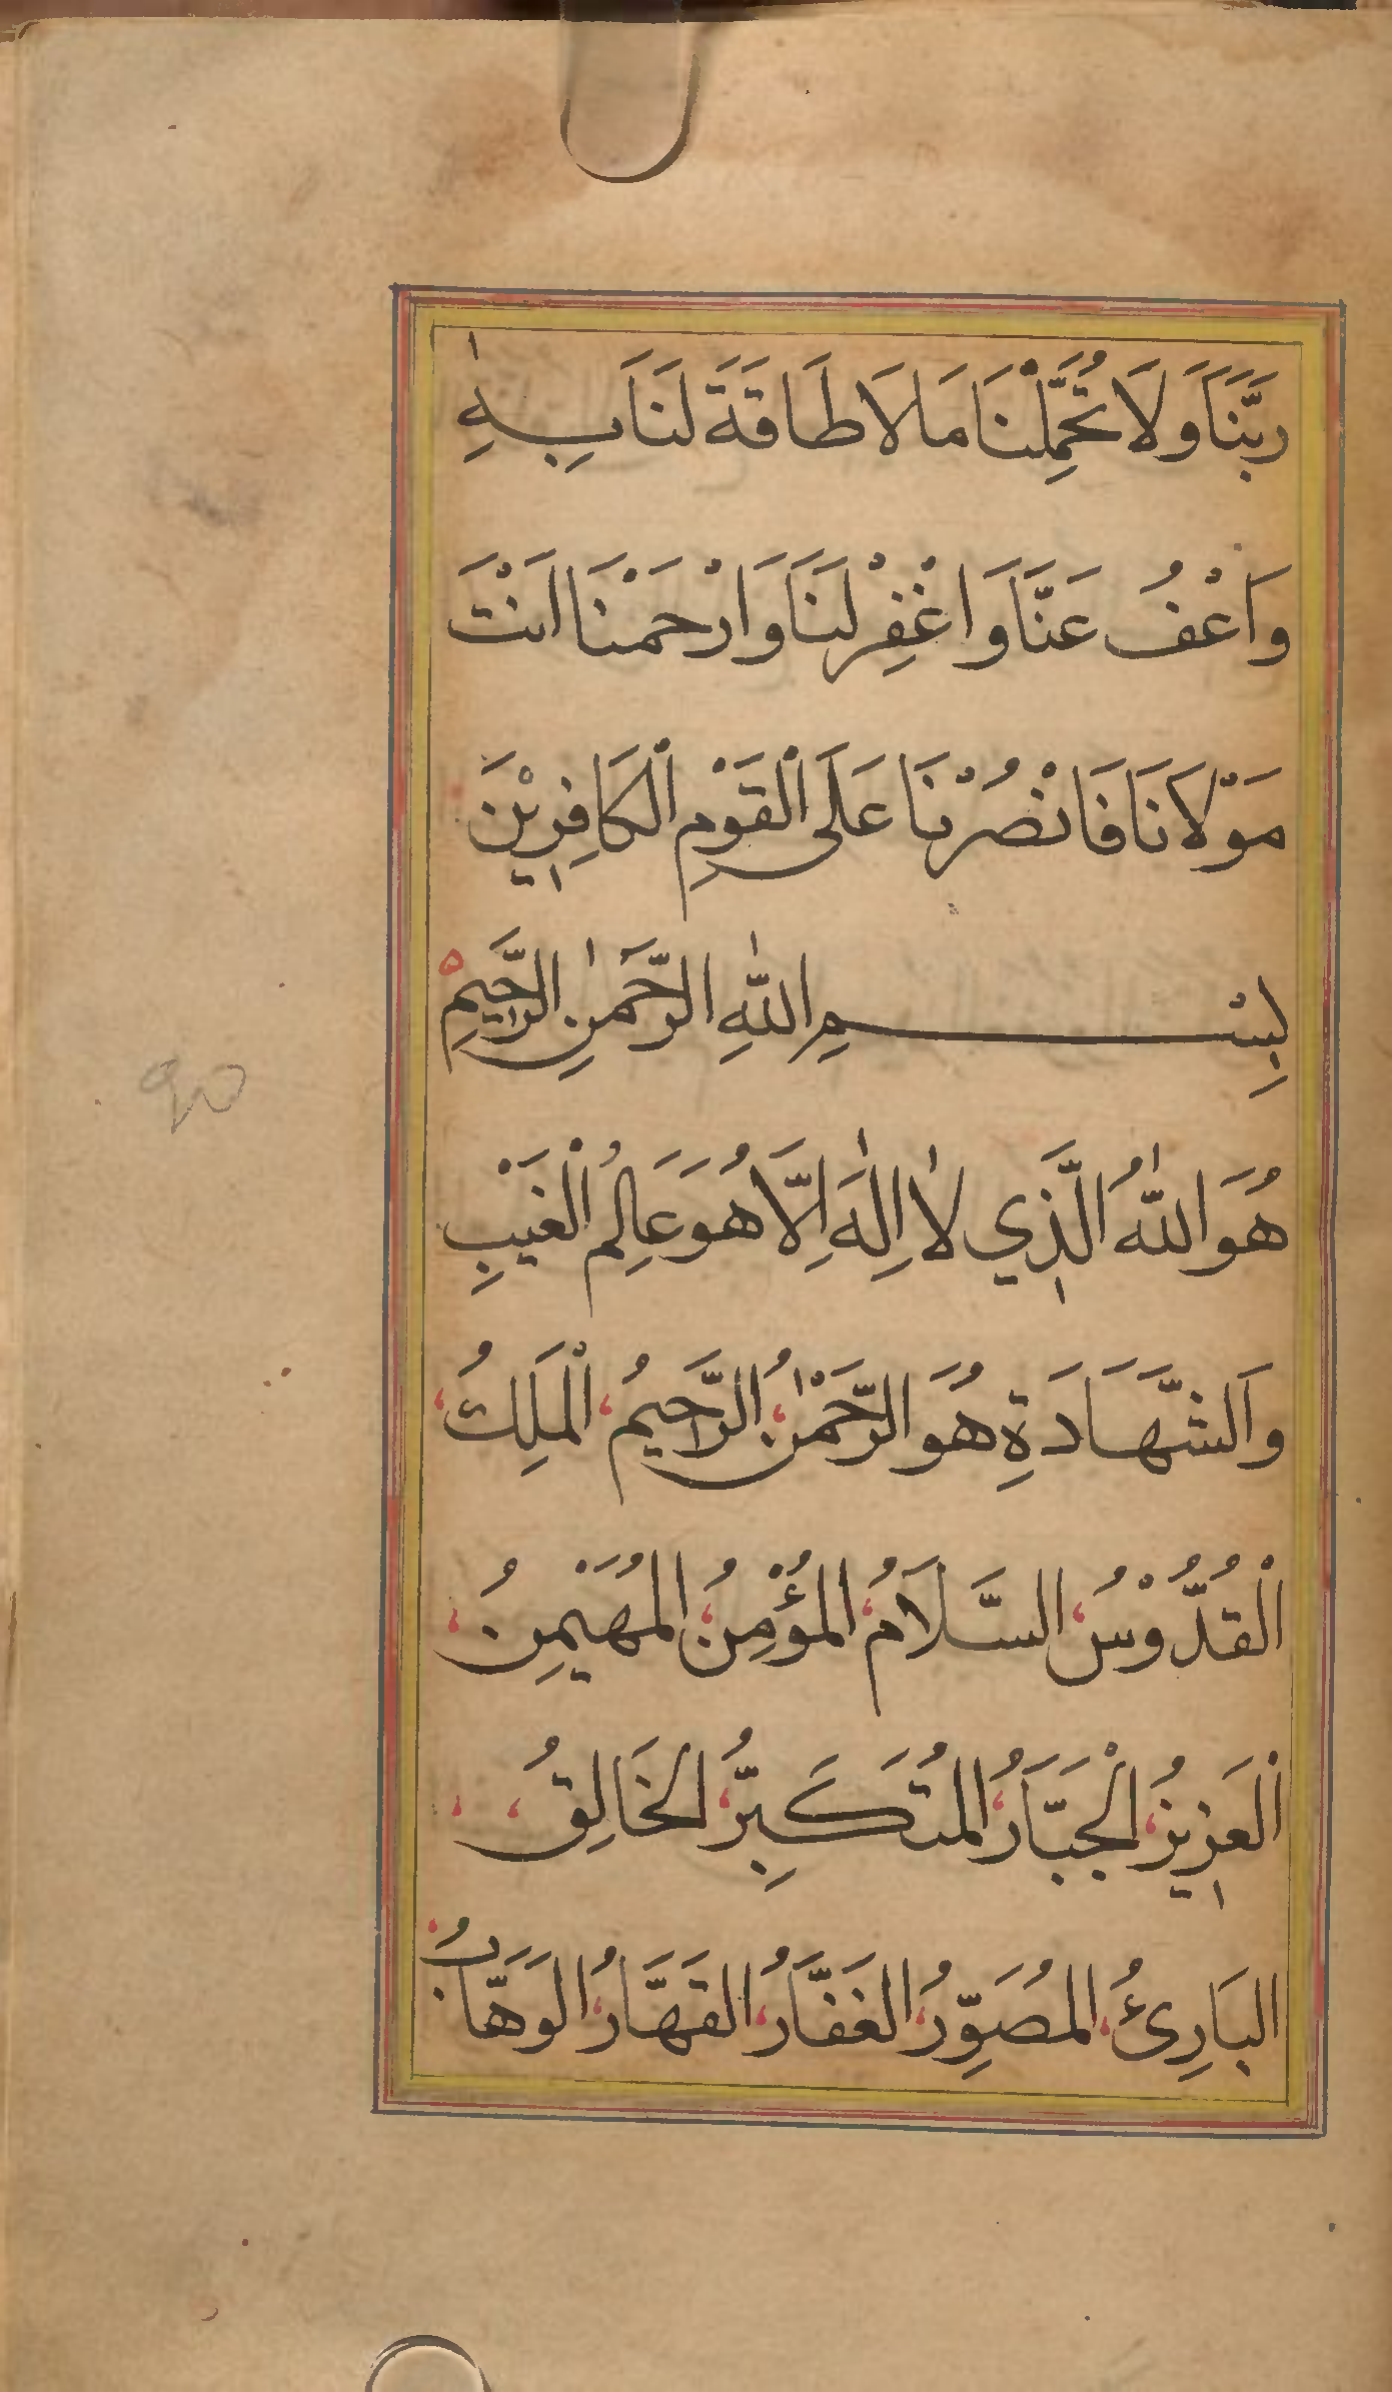 رَبَّنَا وَلَا تُحَمِّلْنَا مَا لَا طَاقَةَ لَنَا بِهِ
وَاعْفُ عَنَّا وَاغْفِرْ لَنَا وَارْحَمْنَا اَنْتَ
مَوْلَانَا فَانْصُرْنَا عَلَى الْقَوْمِ الْكَافِرِيْنَ
بِسْمِ اللّٰهِ الرَّحْمٰنِ الرَّحِيمِ
هُوَ اللّٰهُ الَّذِي لَا اِلٰهَ اِلَّا هُوَ عَالِمُ الْغَيْبِ
وَالشَّهَادَةِ هُوَ الرَّحْمٰنُ الرَّحِيمُ الْمَلِكُ
الْقُدُّوْسُ السَّلَامُ الْمُؤْمِنُ الْمُهَيْمِنُ
الْعَزِيزُ الْجَبَّارُ الْمُتَكَبِّرُ الْخَالِقُ
الْبَارِئُ الْمُصَوِّرُ الْغَفَّارُ الْقَهَّارُ الْوَهَّابُ